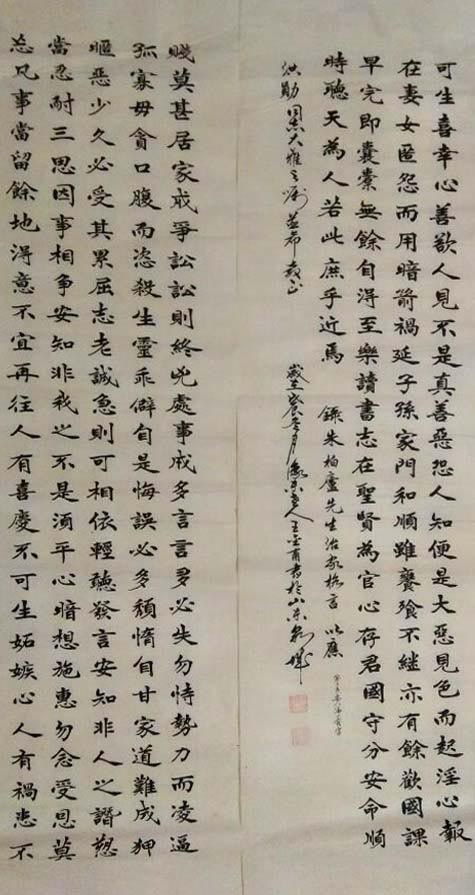 賤莫甚居家戒爭訟訟則終兇處事戒多言言多必失勿恃勢力而凌逼
孤寡毋貪口腹而恣殺生靈乖僻自是悔誤必多頹惰自甘家道難成狎
暱惡少久必受其累屈志老誠急則可相依輕聽發言安知非人之譖愬
當忍耐三思因事相爭安知非我之不是須平心暗想施惠勿念受恩莫
忘凡事當留餘地得意不宜再往人有喜慶不可生妬嫉心人有禍患不
可生喜幸心善欲人見不是真善惡恐人知便是大惡見色而起淫心報
在妻女匿怨而用暗箭禍延子孫家門和順雖饔飧不繼亦有餘歡國課
早完即囊橐無餘自得至樂讀書志在聖賢為官心存君國守分安命順
時聽天為人若此庶乎近焉 錄朱柏廬先生治家格言 以應
同志大雅之囑並希教正
歲壬辰 月 老人王 甫書於山东